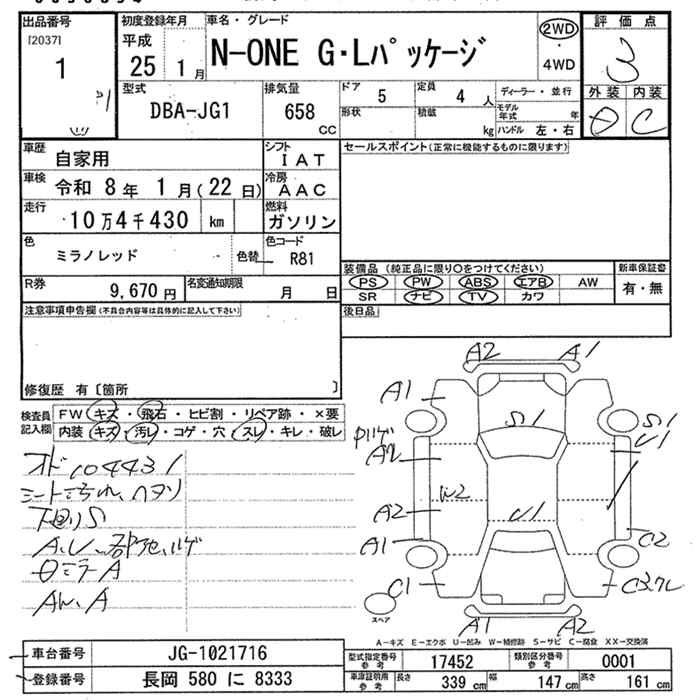 出品番号
[2037]
1
初度登録年月
平成
25 1月
車名・グレード
N-ONE G・Lパッケージ
2WD
・
4WD
評価点
3
外装 内装
C
型式
DBA-JG1
排気量
658 cc
ドア 5
定員 4 人
形状
積載 kg
ディーラー・並行
モデル年式 年
ハンドル 左・右
車歴
自家用
シフト
IAT
車検
令和 8年 1月(22日)
冷房
AAC
走行
10万4千430 km
燃料
ガソリン
色
ミラノレッド
色替
色コード
R81
R券
9,670円
名変通知期限
月 日
セールスポイント(正常に機能するものに限ります)
装備品 (純正品に限り〇をつけてください)
PS PW ABS エアB AW
SR ナビ TV カワ
新車保証書
有・無
後日品
注意事項申告欄(不具合内容等は具体的に記入して下さい)
修復歴 有〔箇所 〕
検査員記入欄
FW キズ・飛石・ヒビ割・リペア跡・×要
内装 キズ・汚レ・コゲ・穴・スレ・キレ・破レ
オド104431
下回りS
A2 A1
A1
S1
S1
U1
A2
W2
A2
U1
A1
C2
C1
A1 A2
スペア
A-キズ E-エクボ U-凹み W-補修跡 S-サビ C-腐食 XX-交換済
車台番号
JG-1021716
登録番号
長岡 580 に 8333
型式指定番号
参考
17452
類別区分番号
参考
0001
車庫証明用
参考
長さ 339 cm
幅 147 cm
高さ 161 cm